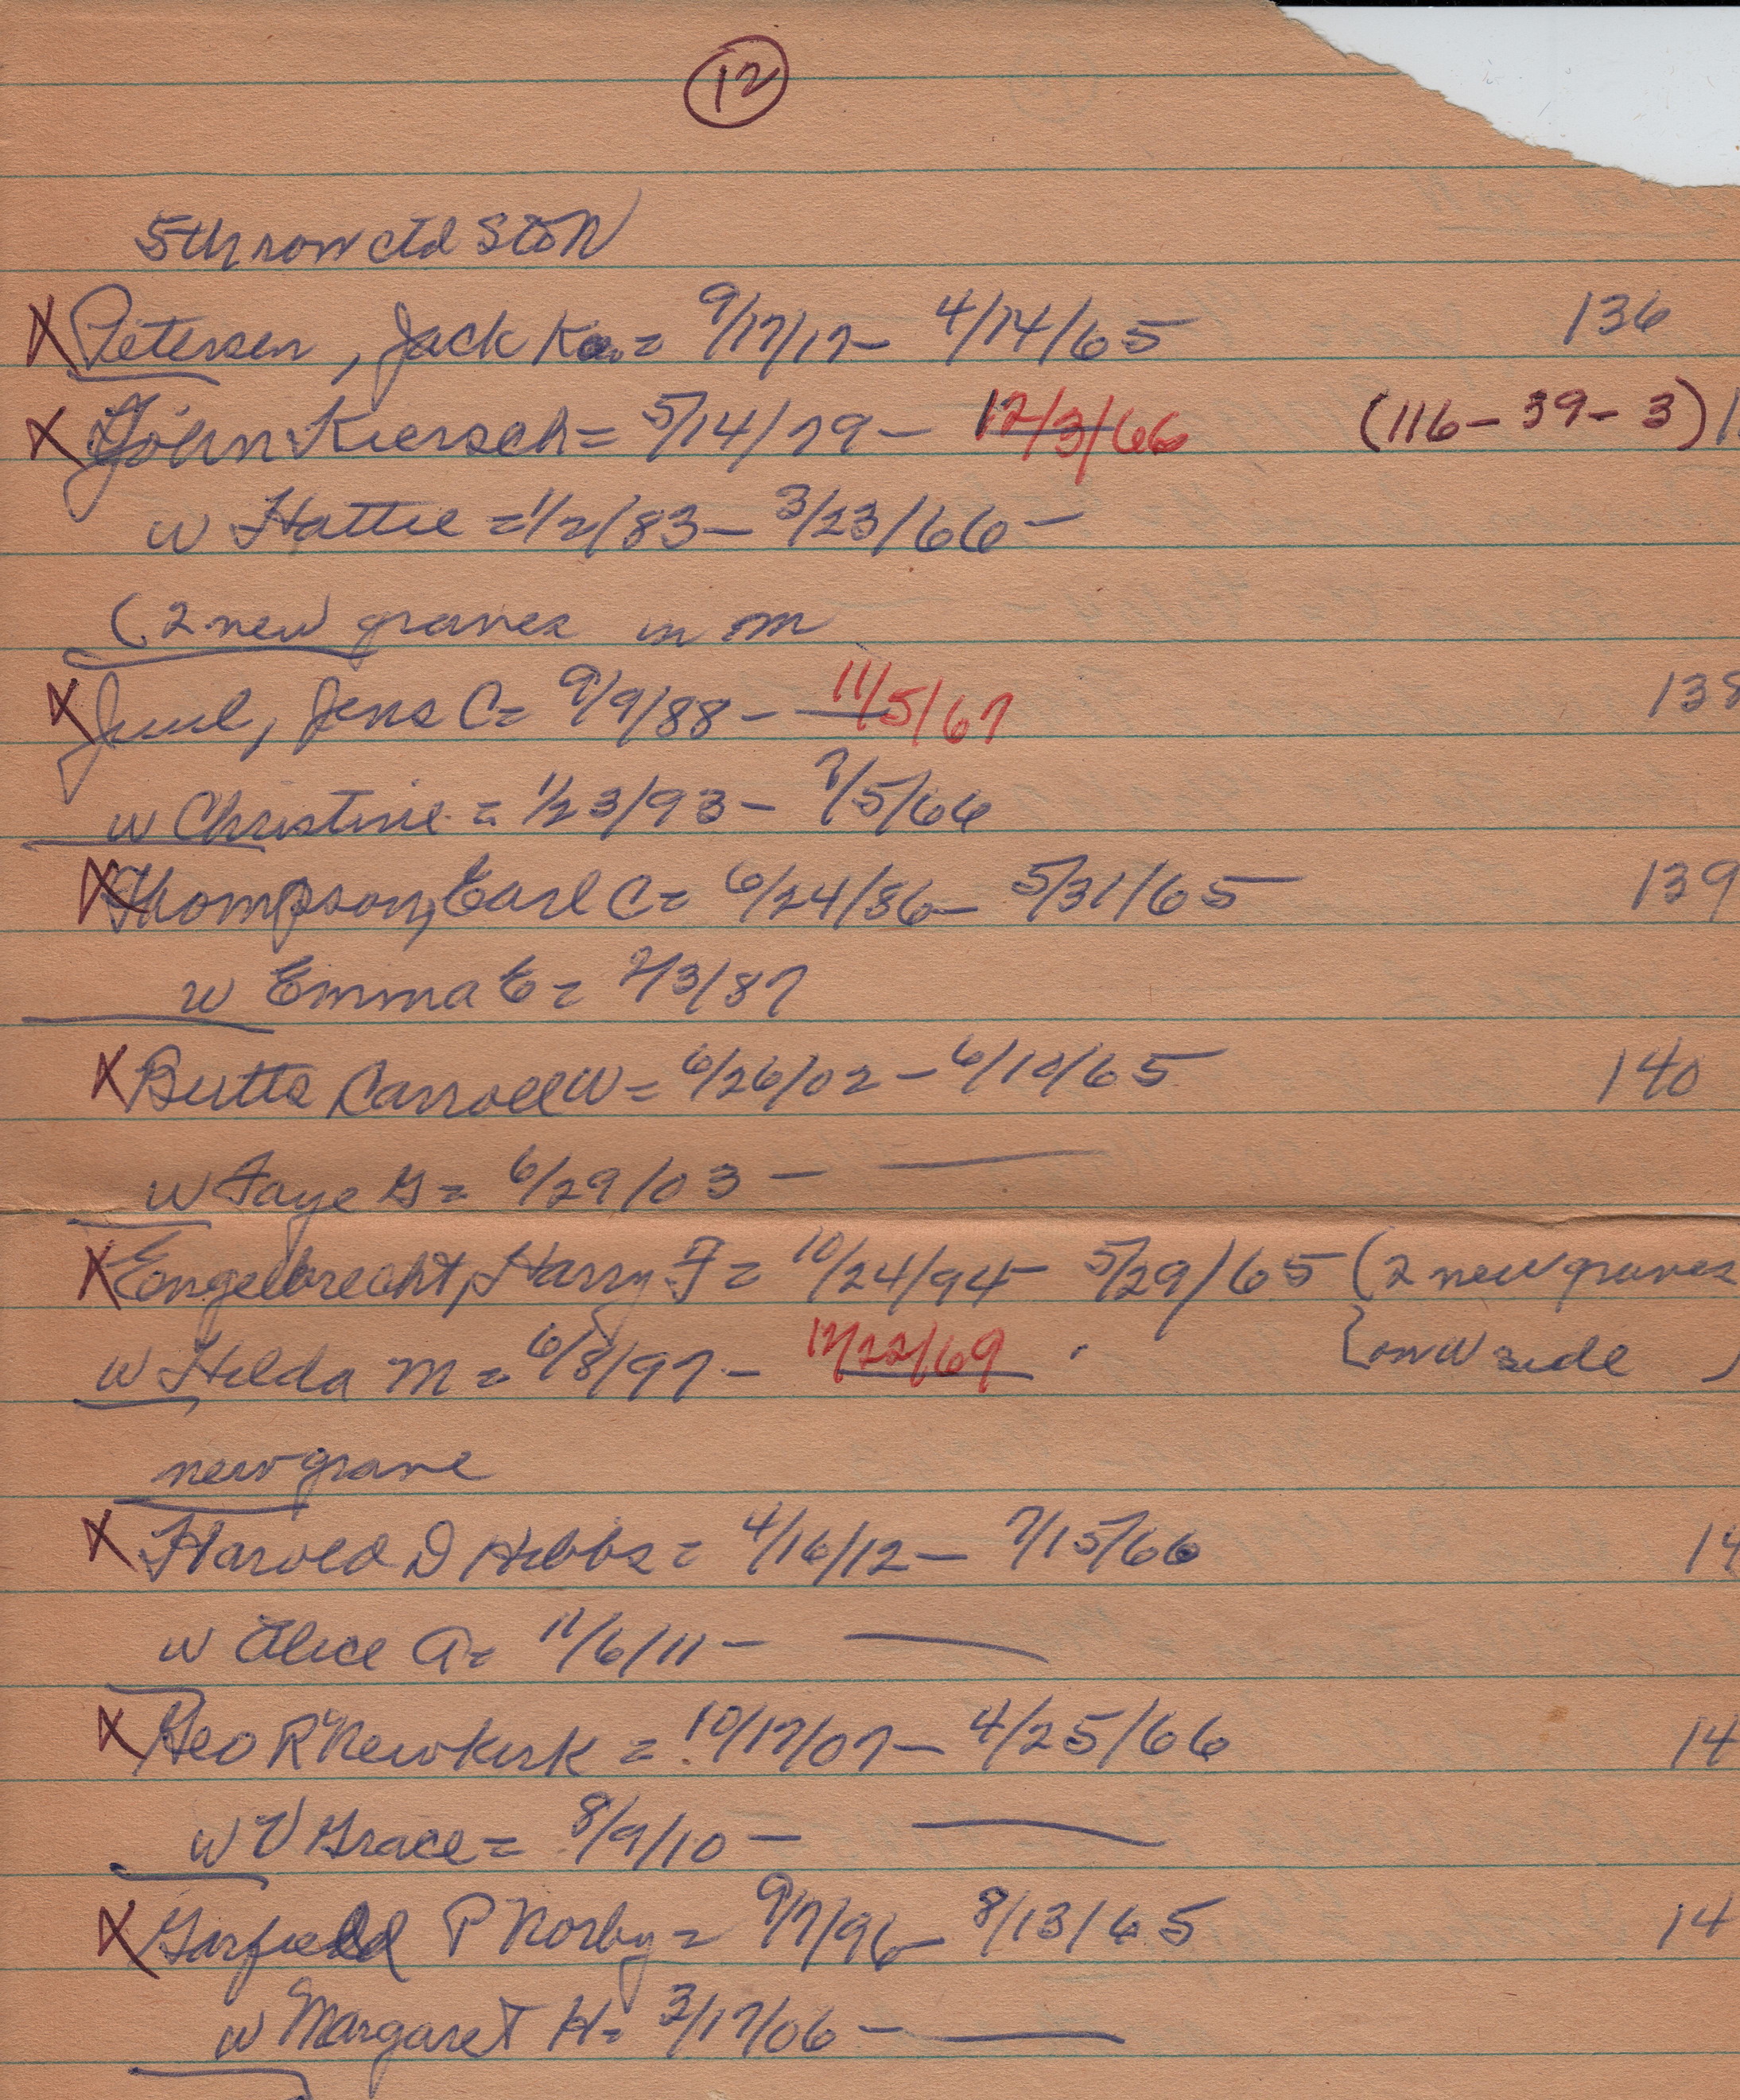 12
5th row ctd S to N
X Petersen, Jack K = 9/17/17 – 4/14/65 136
X John Kiersch = 5/14/79 – 12/3/66 (116 – 39 – 3)
w Hattie = 1/2/83 – 3/23/66 –
(2 new graves in m
X Juul, Jens C = 9/9/88 – 11/5/67 138
w Christine = 1/23/93 – 7/5/66
X Thompson, Earl C = 6/24/86 – 5/31/65 139
w Emma E = 2/3/87
X Butts Carroll W = 6/26/02 – 6/10/65 140
w Faye G = 6/29/03 –
X Engelbrecht, Harry F = 10/24/94 – 5/29/65 (2 new graves
w Hilda M = 6/8/97 – 12/22/69 {on W side )
new grave
X Harold D Hibbs = 4/16/12 – 7/15/66 14
w Alice A = 11/6/11 –
X Geo R Newkirk = 10/17/07 – 4/25/66 14
w V Grace = 8/9/10 –
X Garfield P Norby = 9/7/96 – 8/13/65 14
w Margaret H = 3/17/06 –